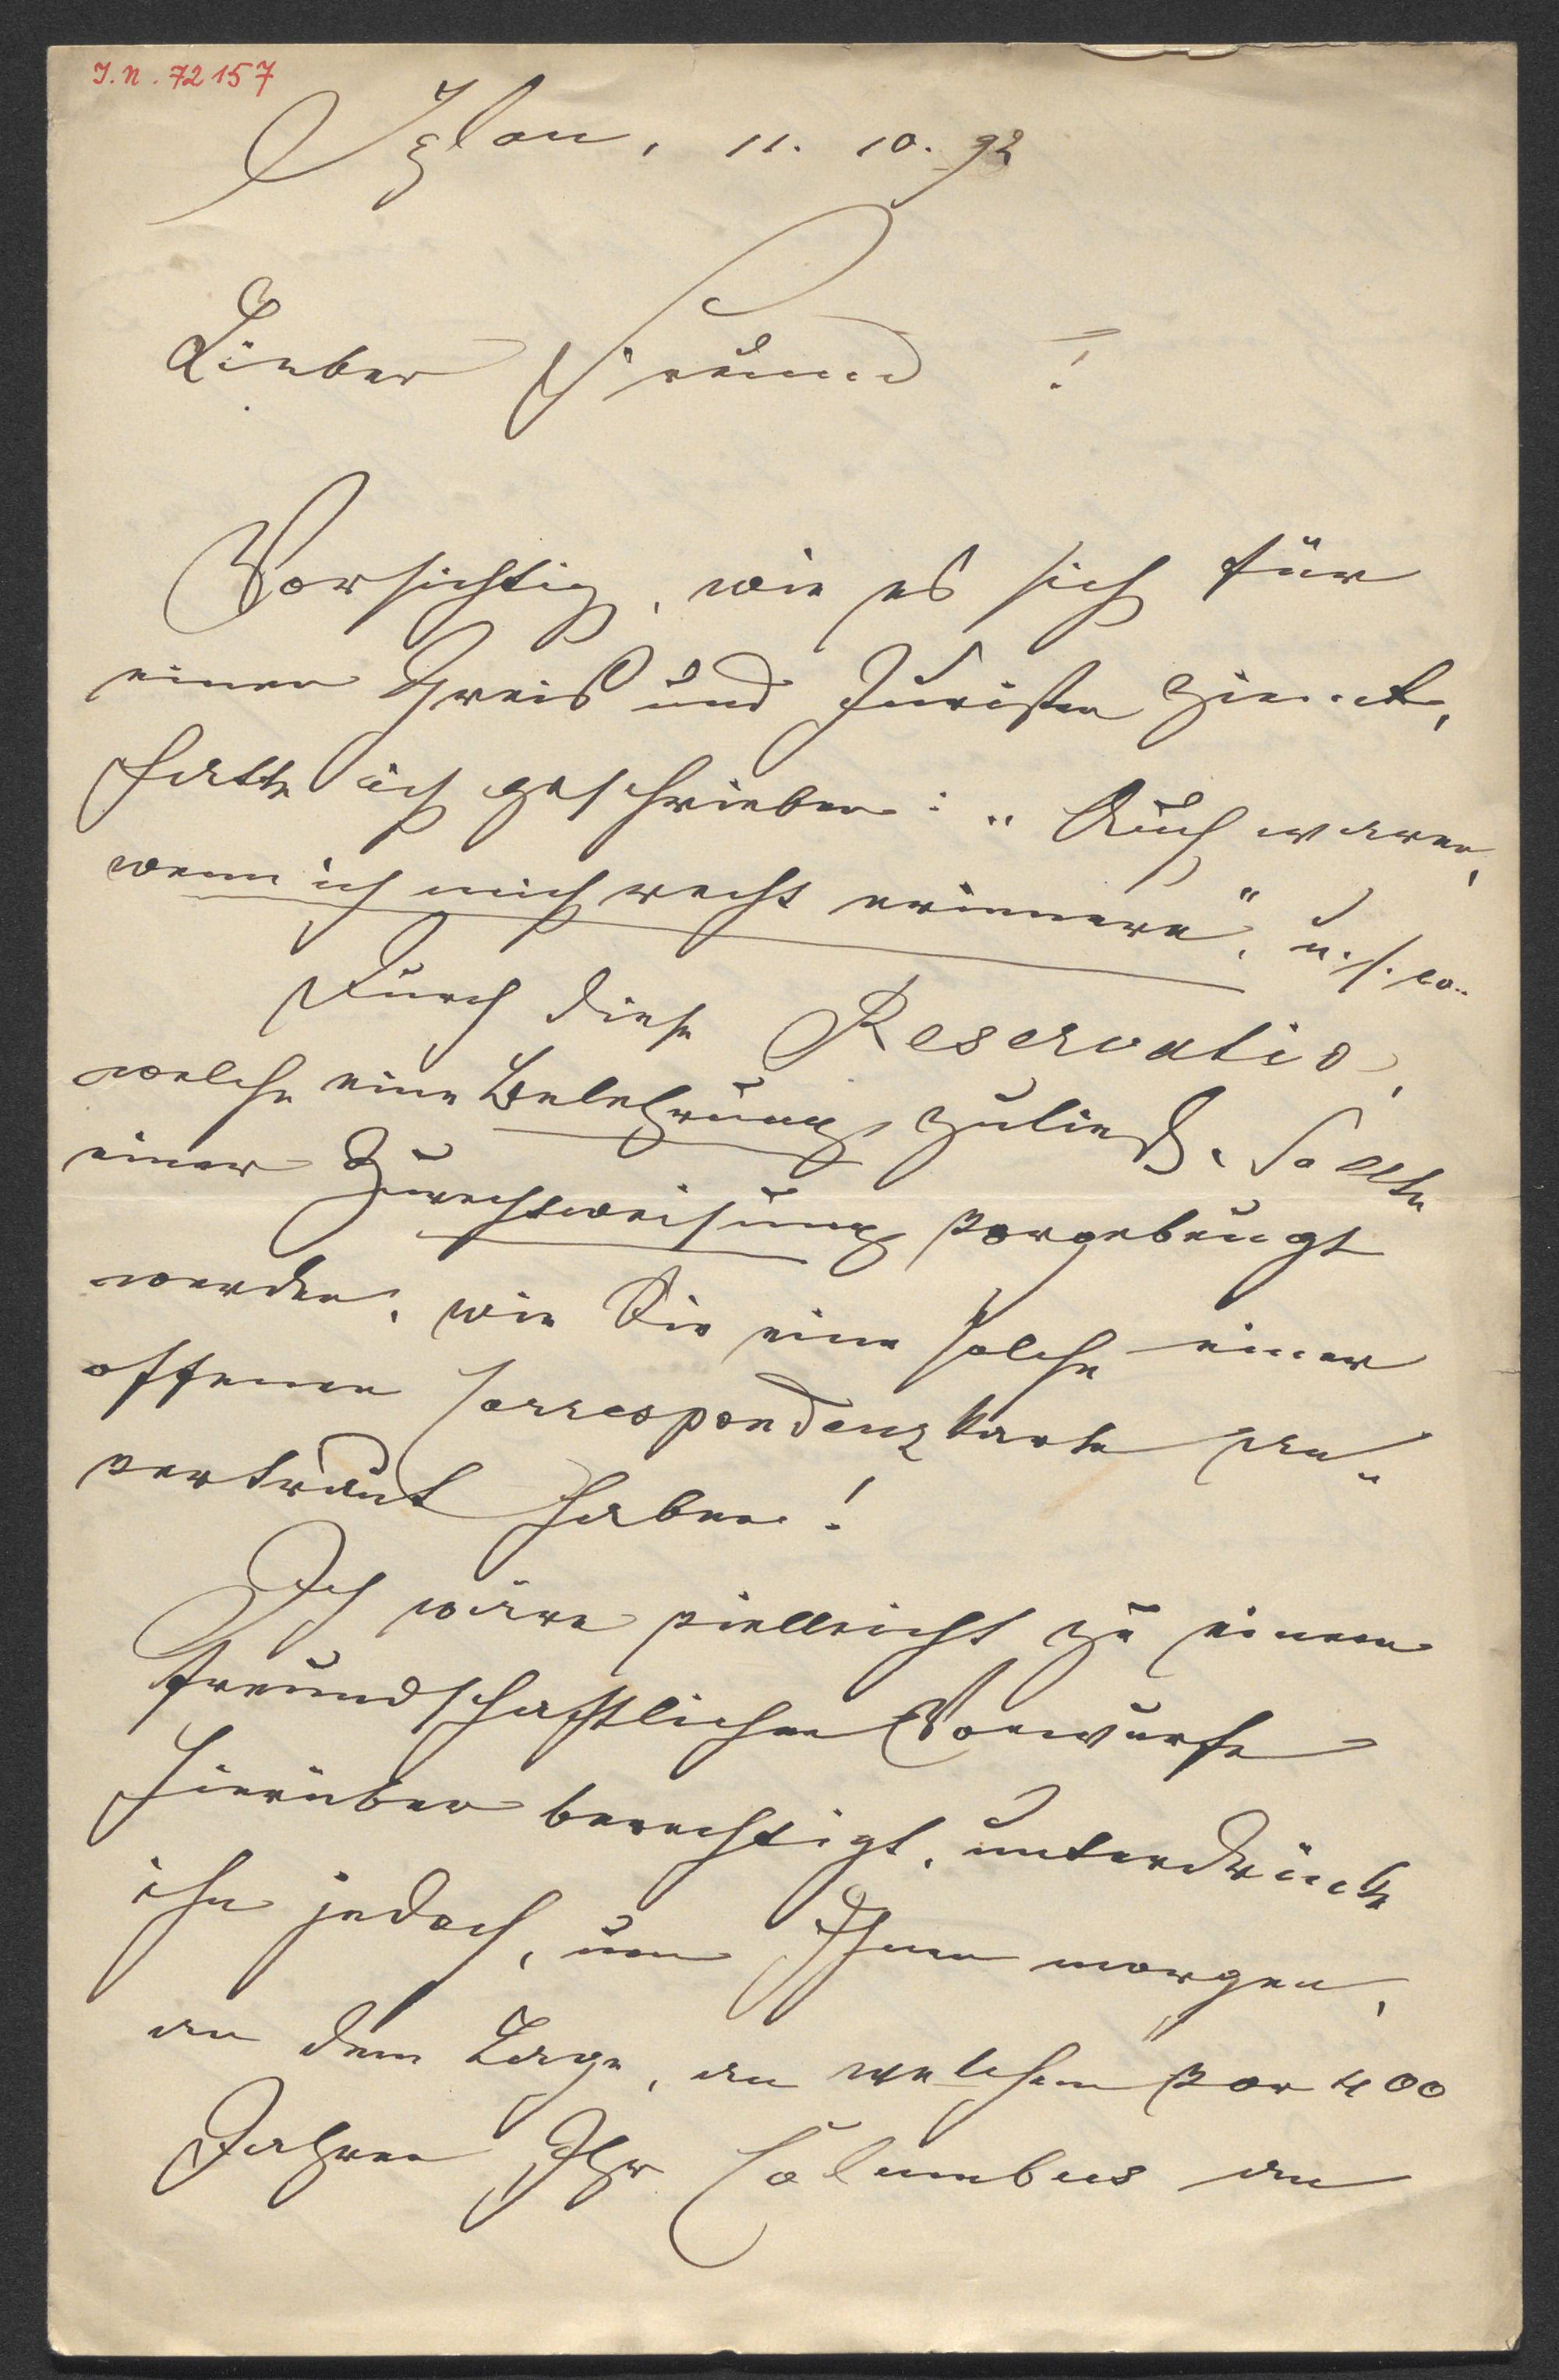 I. N. 72157
Iglau, 11. 10. 92
Lieber Freund !
Vorsichtig, wie es sich für
einen Greis und Juristen ziemt,
hatte ich geschrieben: „Auch waren,
wenn ich mich recht erinnere", u. s. w.
Durch diese Reservatio,
welche eine Belehrung zuließ, sollte
einer Zurechtweisung vorgebeugt
werden, wie Sie eine solche einer
offenen Correspondenzkarte an-
vertraut haben!
Ich wäre vielleicht zu einem
freundschaftlichen Vorwurfe
hierüber berechtigt, unterdrücke
ihn jedoch, um Ihnen morgen,
an dem Tage, an welchem vor 400
Jahren Ihr Columbus an